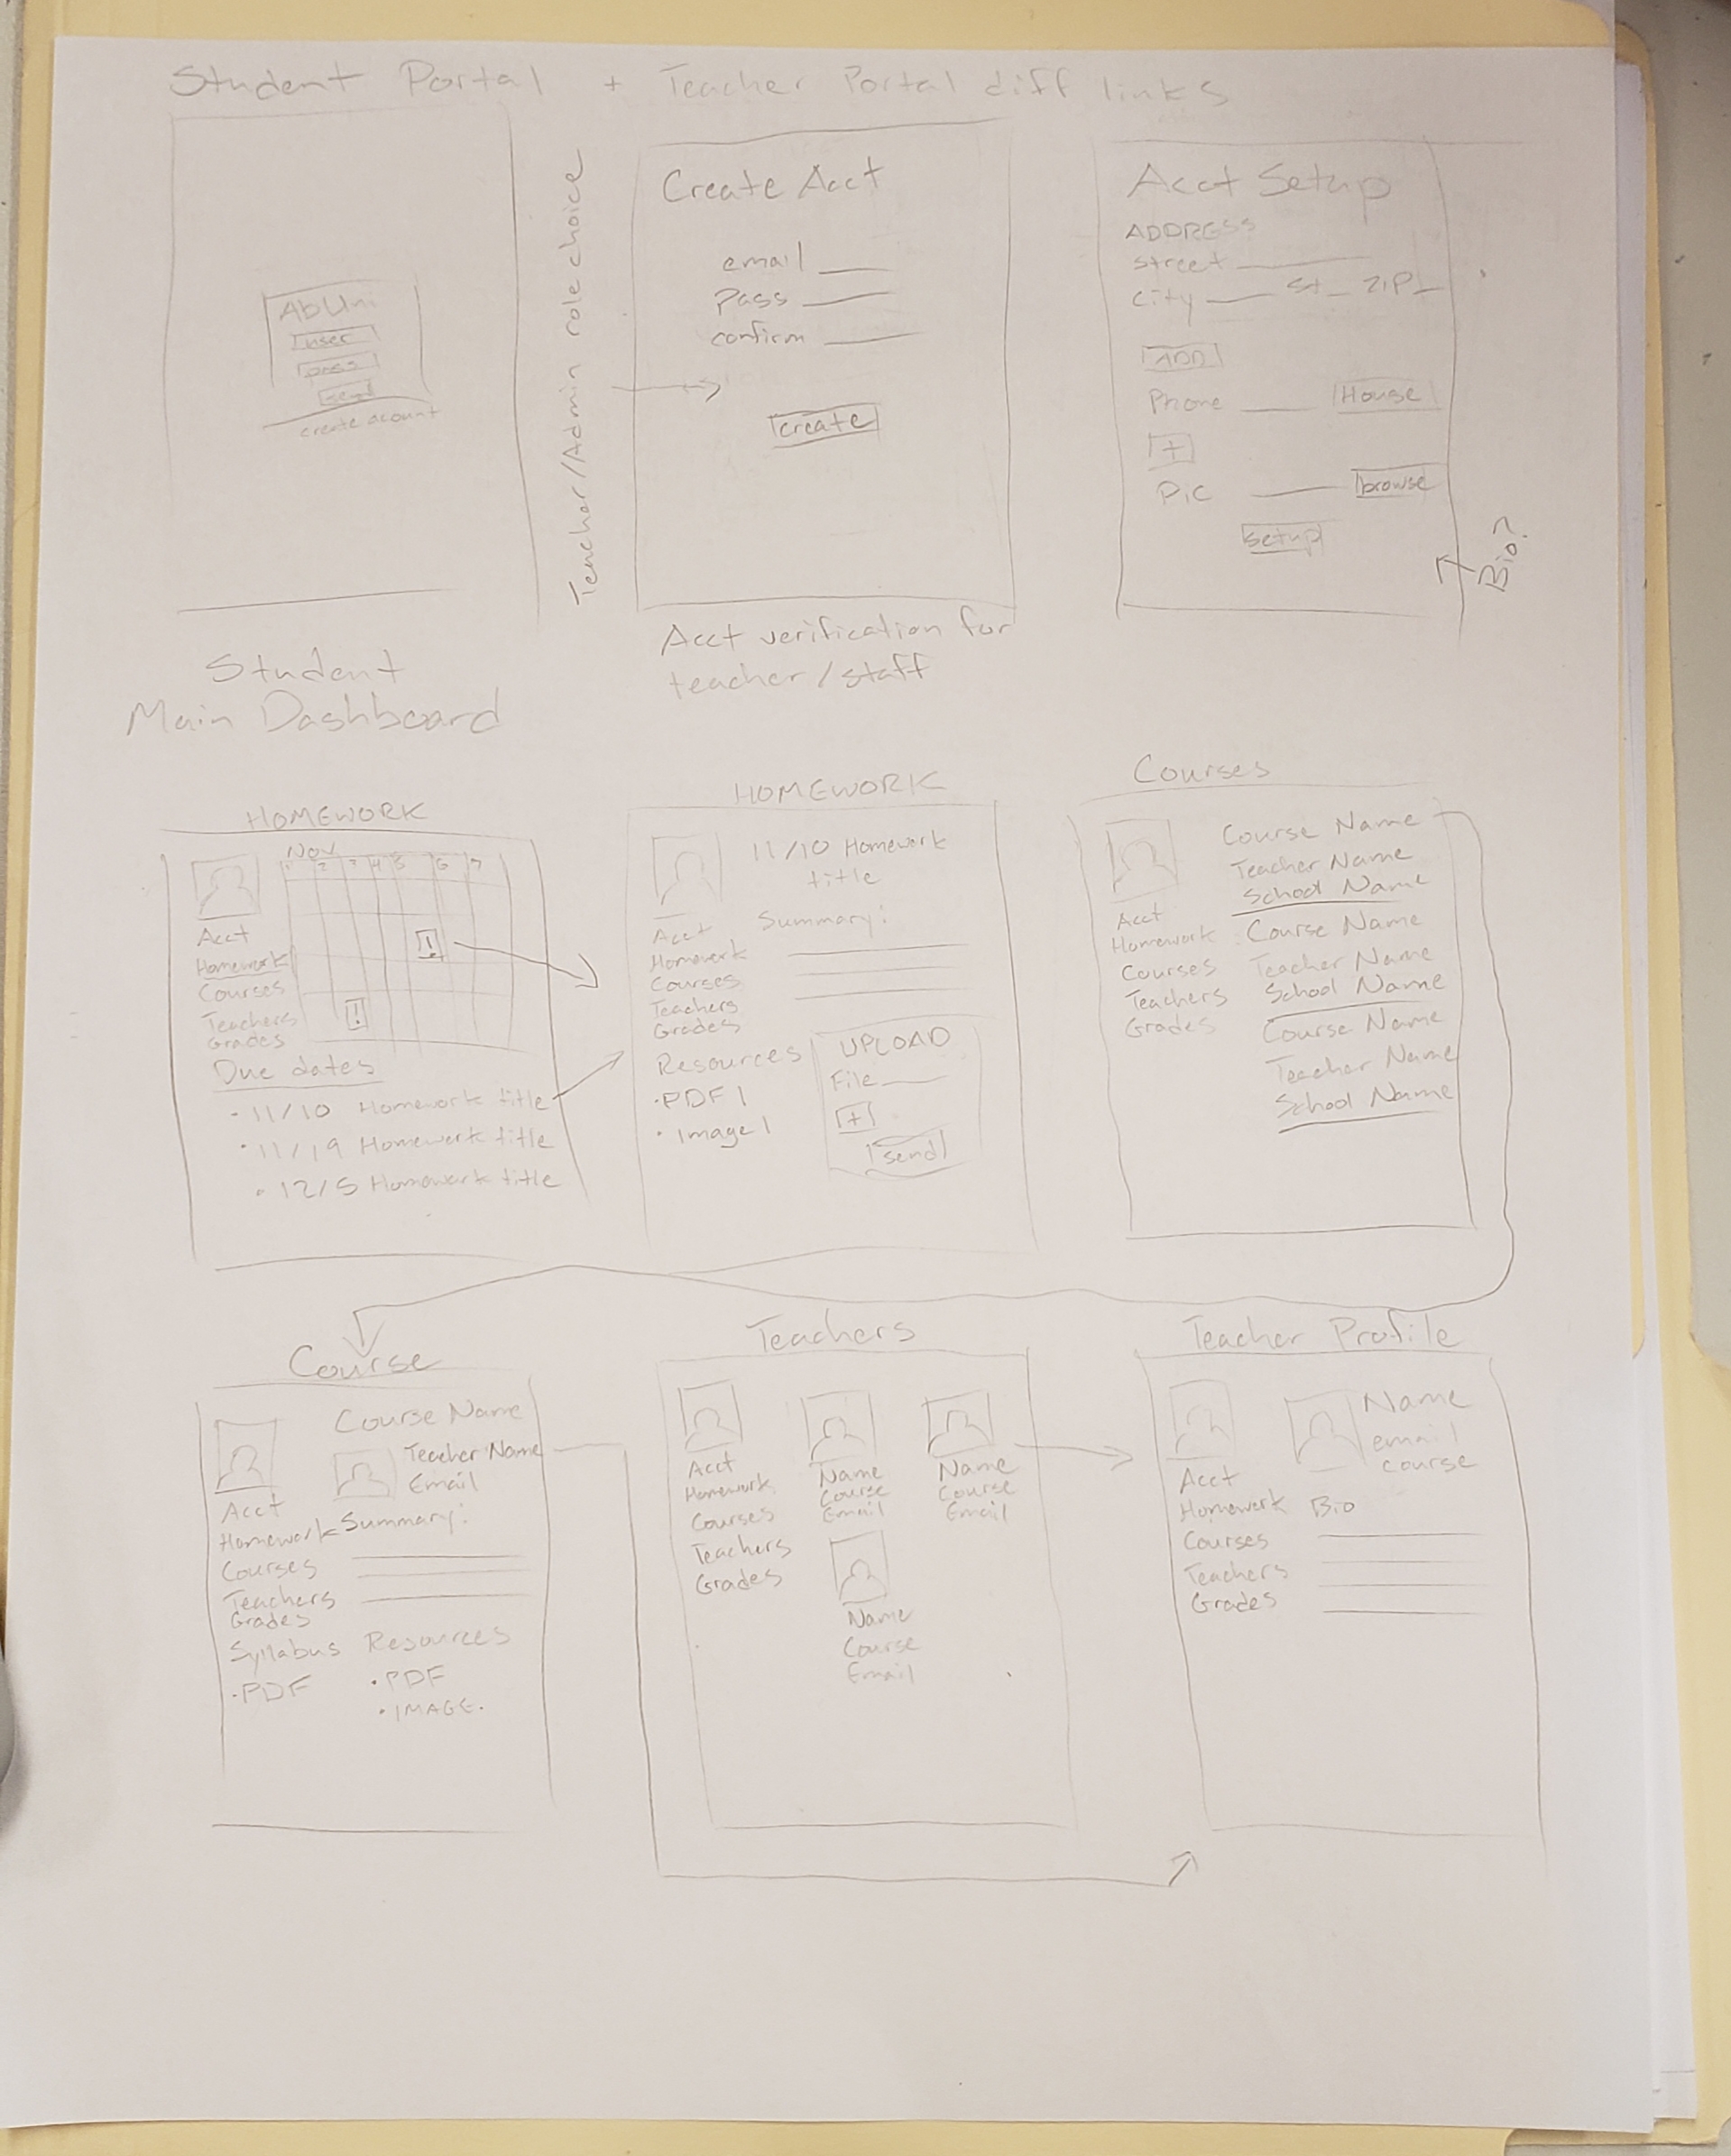 Student Portal + Teacher Portal diff links
AbUni
user
pass
send
create acount
Teacher/Admin role choice
Create Acct
email
Pass
confirm
create
Acct verification for
teacher/staff
Acct Setup
ADDRESS
street
City St ZIP
ADD
Phone House
+
Pic browse
setup
Bio?
Student
Main Dashboard
HOMEWORK
Nov
1 2 3 4 5 6 7
!
!
Acct
Homework
Courses
Teachers
Grades
Due dates
• 11/10 Homework title
• 11/19 Homework title
• 12/5 Homework title
HOMEWORK
11/10 Homework
title
Summary:
Acct
Homework
Courses
Teachers
Grades
Resources
• PDF 1
• Image 1
UPLOAD
File
+
send
Courses
Acct
Homework
Courses
Teachers
Grades
Course Name
Teacher Name
School Name
Course Name
Teacher Name
School Name
Course Name
Teacher Name
School Name
Course
Course Name
Teacher Name
Email
Summary:
Acct
Homework
Courses
Teachers
Grades
Syllabus
• PDF
Resources
• PDF
• IMAGE.
Teachers
Acct
Homework
Courses
Teachers
Grades
Name
Course
Email
Name
Course
Email
Name
Course
Email
Teacher Profile
Name
email
course
Acct
Homework
Courses
Teachers
Grades
Bio